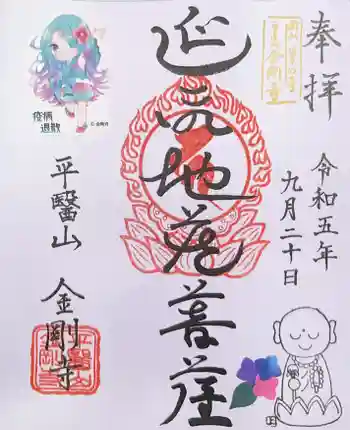 奉拝
令和五年
九月二十日
延命地蔵菩薩
平醫山 金剛寺
疫病
退散